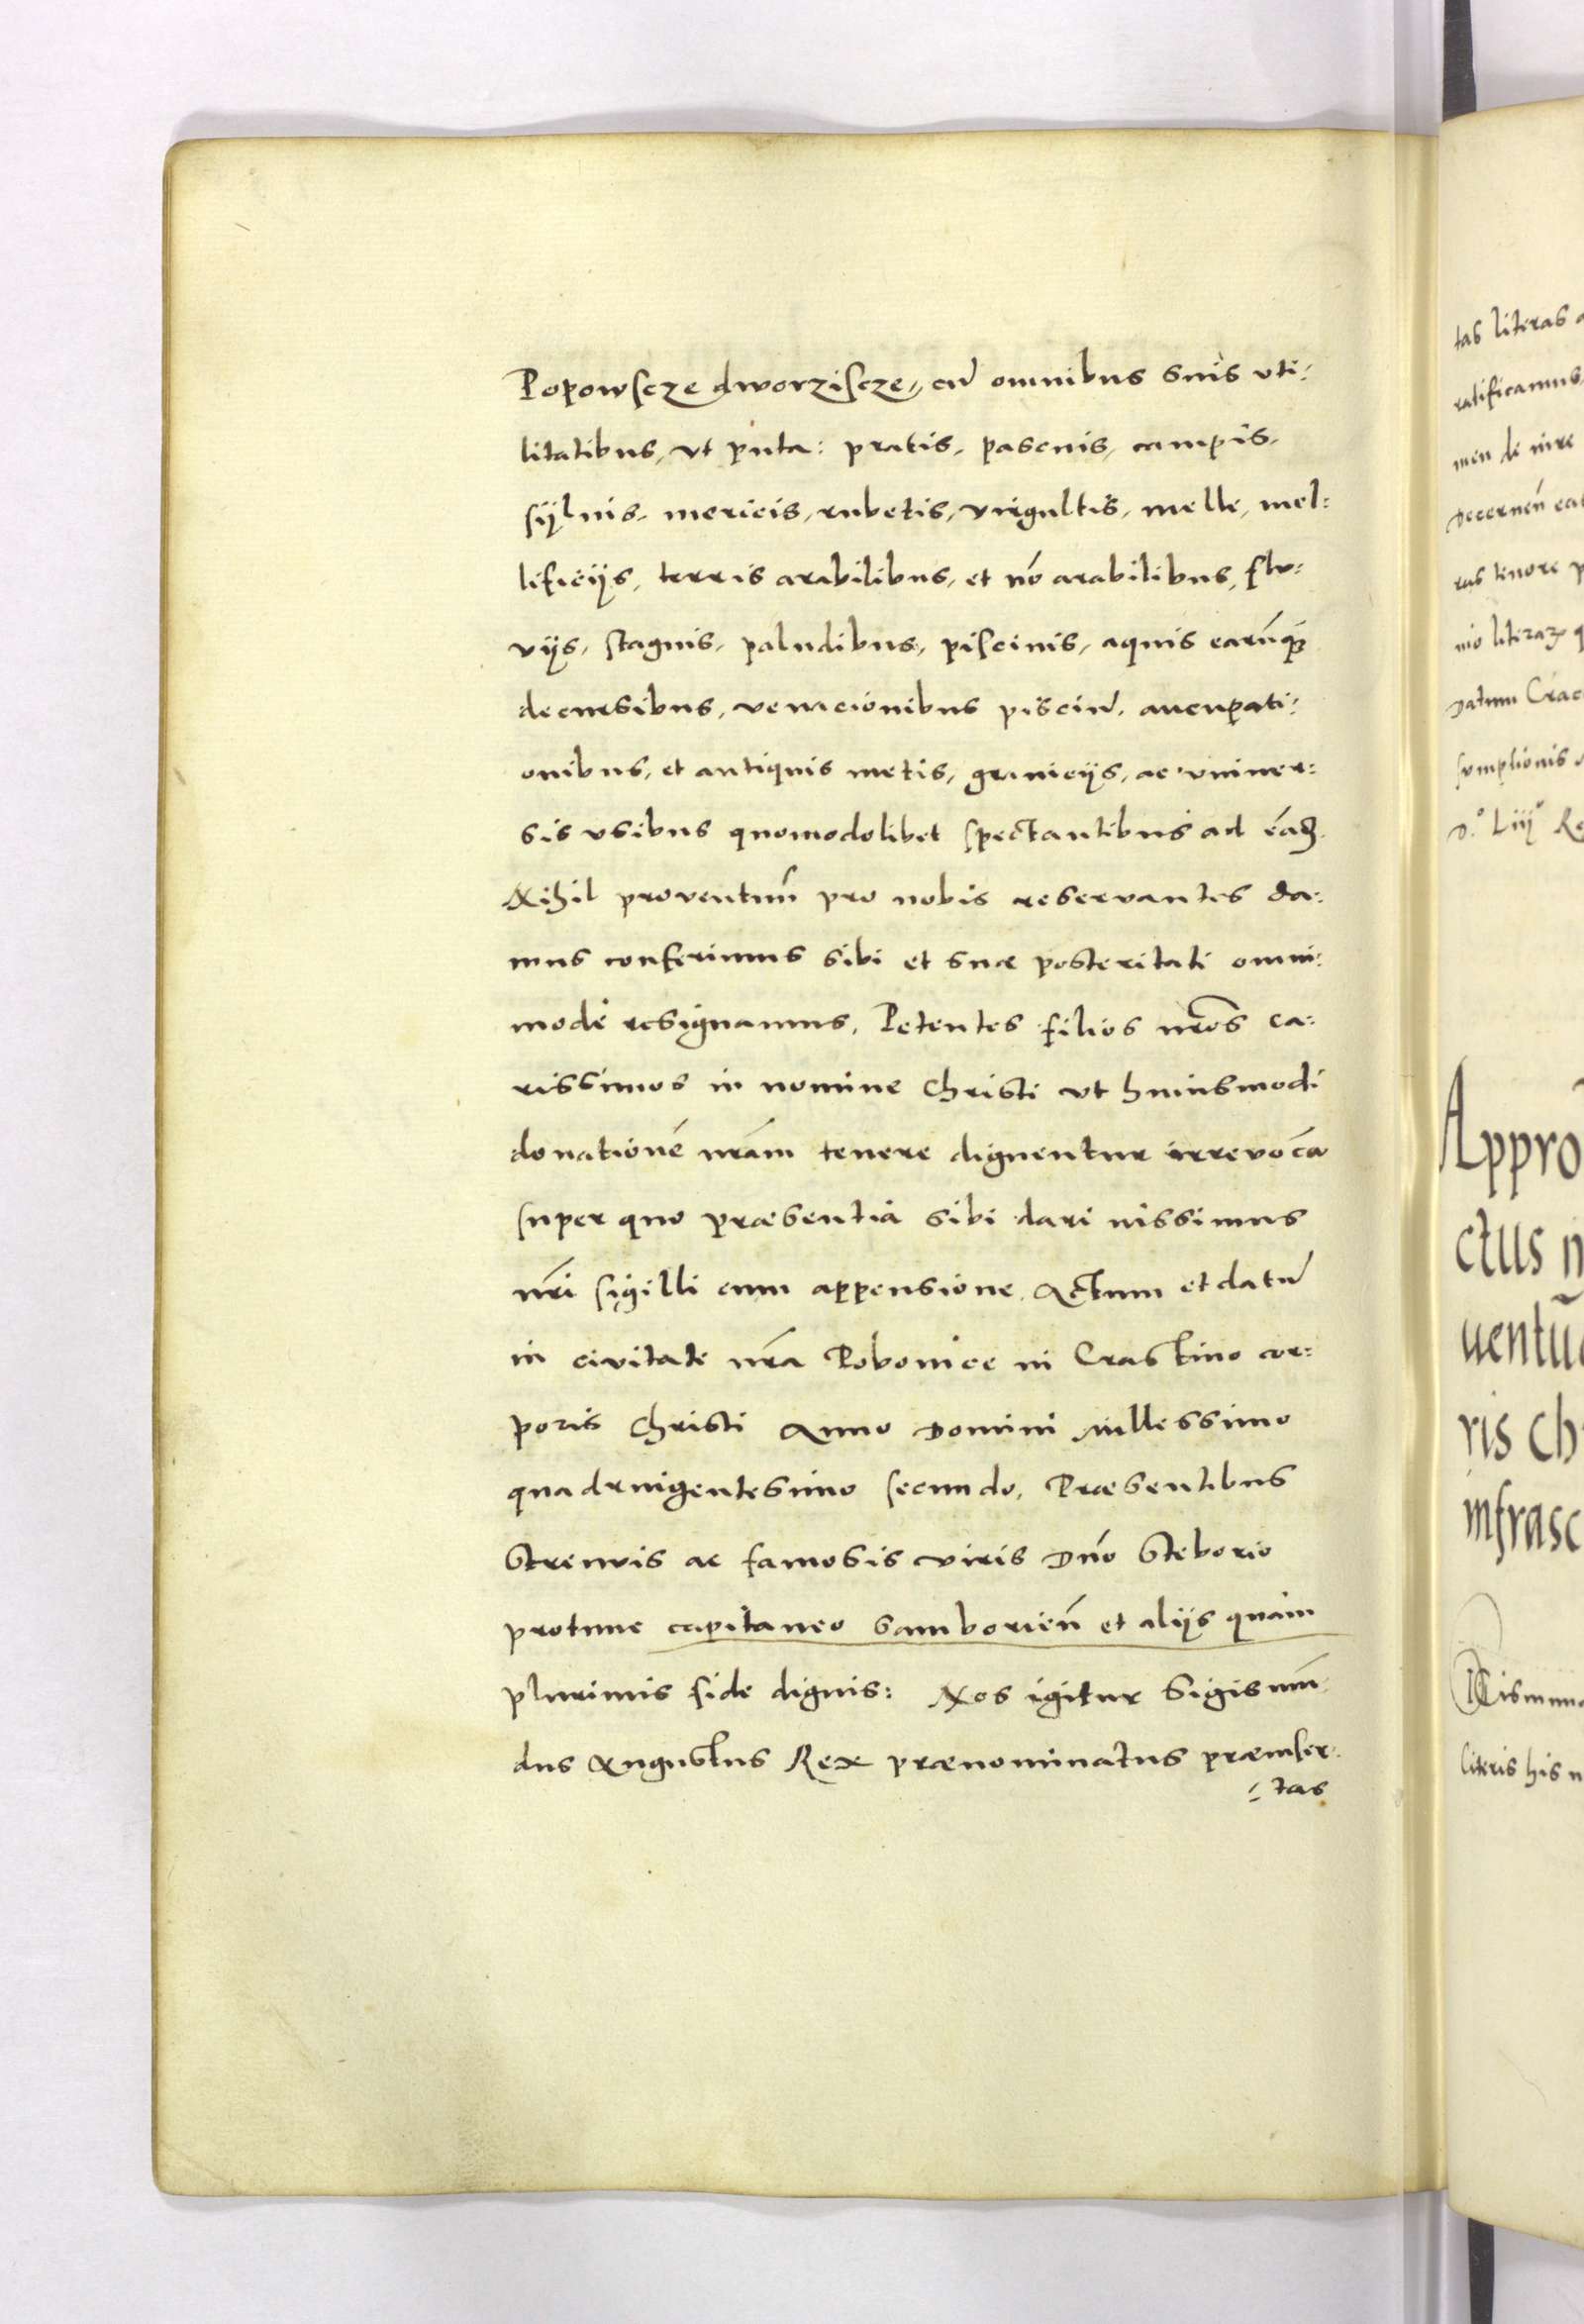 Popowscze dworziscze, cū omnibus suis vti:
litatibus, vt puta: pratis, pascuis, campis,
sÿluis, mericis, rubetis, virgultis, melle, mel:
lificijs, terris arabilibus, et nō arabilibus, flu:
vijs, stagnis, paludibus, piscinis, aquis earūq̃
decursibus, venacionibus pisciū, aucupati:
onibus, et antiquis metis, granicijs, ac vniuer:
sis vsibus quomodolibet spectantibus ad
Nihil proventuū pro nobis reservantes da:
mus conferimus sibi et suæ posteritati omni:
mode resignamus, Petentes filios nr̄os ca:
rissimos in nomine Christi vt huiusmodi
donationē nr̄am tenere dignentur irrevoca
super quo præsentia sibi dari iussimus
nr̄i sigilli cum appensione Actum et datū
in civitate nr̄a in Crastino cor:
poris Christi Anno Domini Millessimo
quadringentesimo secundo, Præsentibus
Strenuis ac famosis viris Dn̄o Steborio
protunc capitaneo Samborien̄ et alijs quam
plurimis fide dignis: Nos igitur Sigismun:
dus Augustus Rex prænominatus præinser:
:tas
tas literas
ratificamus
men de iure
Decernen̄
ras tenore
nio literaꝝ
Datum Crac
sumptionis
D.º Liij.º Re
Appro
ctus
uentu
ris Ch
infrasc
literis his